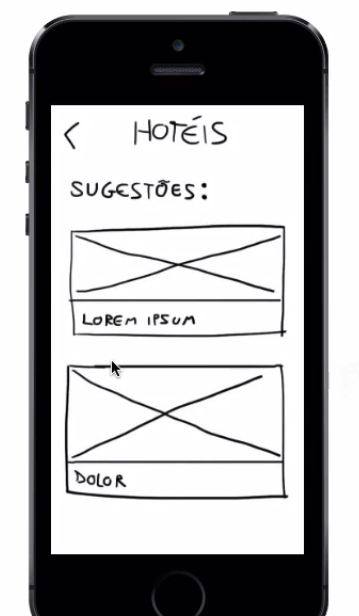 HOTÉIS
SUGESTÕES:
LOREM IPSUM
DOLOR